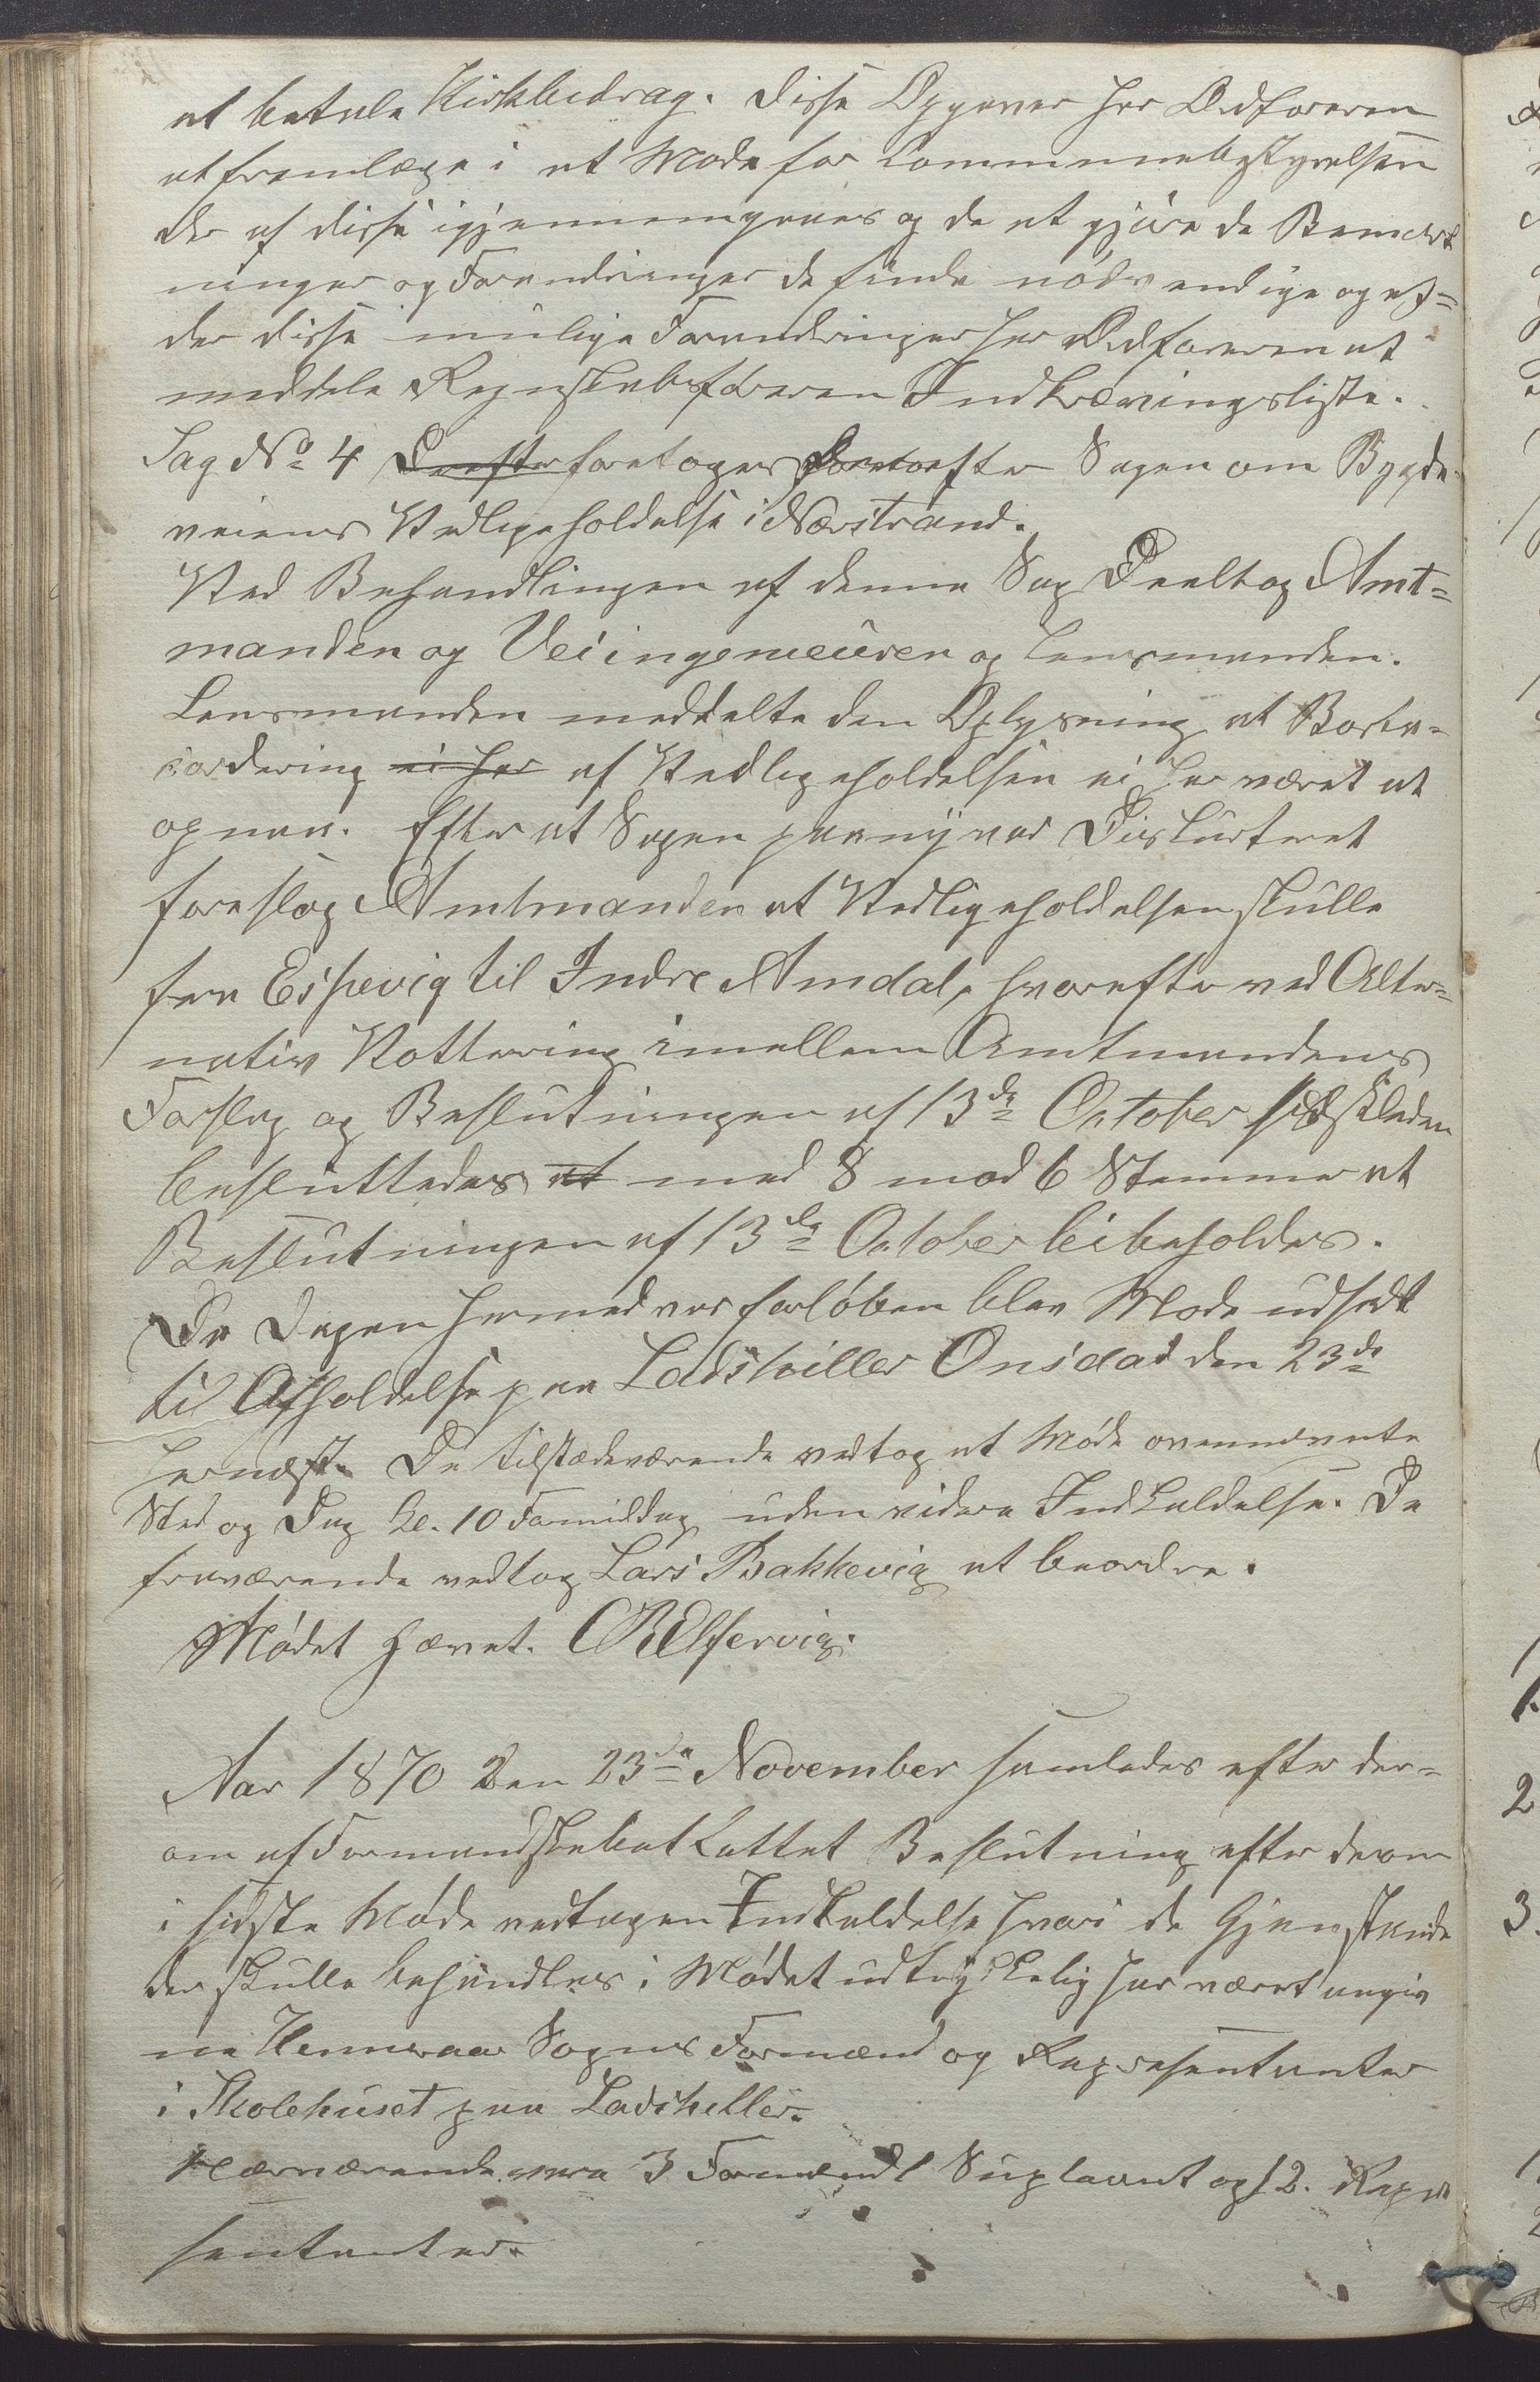 at betale Kirkbidrag. Disse Opgaver har Ordføreren
at fremlægge i et Møde for Communebestyrelsen
der af disse igjennemgaaes og da at gjøre de Bemærk
ninger og Forandringer de finde nødvendige og ef=
der disse mulige Forandringer har Ordføreren at
meddele Regnskabsføreren Indkrævingsliste.
Sag No 4 Derefter foretoges derefter Sagen om Bygde
veiens Vedligeholdelse i Nærstrand.
Ved Behandlingen af denne Sag Deeltog Amt=
manden og Veiingenieuren og Lensmanden.
Lensmanden meddelte den Oplysning at Bortac=
cordering ei har af Vedligeholdelsen ei har været at
opnaa. Efter at Sagen paa ny var Diskuteret
foreslog Amtmanden at Vedligeholdelsen skulle
fra Espevig til Indre Amdal, hvorefter ved Alter=
nativ Vottering imellem Amtmandens
Forslag og Beslutningen af 13de October sidstleden
besluttedes at med 8 mod 6 Stemmer at
Beslutningen af 13de October beibeholdes.
Da Dagen hermed var forløben blev Møde udsadt
til Afholdelse paa Ladshiller Onsdat den 23de
hernæst. De tilstædeværende vedtog at Møde ovennævnte
Sted og Dag kl. 10 Formiddag uden videre Indkaldelse. De
fraværende vedtog Lars Bakkevig at beordre.
Mødet hævet.
Aar 1870 den 23de November samledes efter der=
om af Formandskabet fattet Beslutning efter derom
i sidste Møde vedtagen Indkaldelse hvori de Gjenstande
der skulle behandles i Mødet udtrykkelig har været angiv
ne Hinneraae Sogns Formænd og Repræsentanter
i Skolehuset paa Ladsheller.
Nærværende vare 3 Formænd 1 Supleant og 12. Repræ
sentanter.